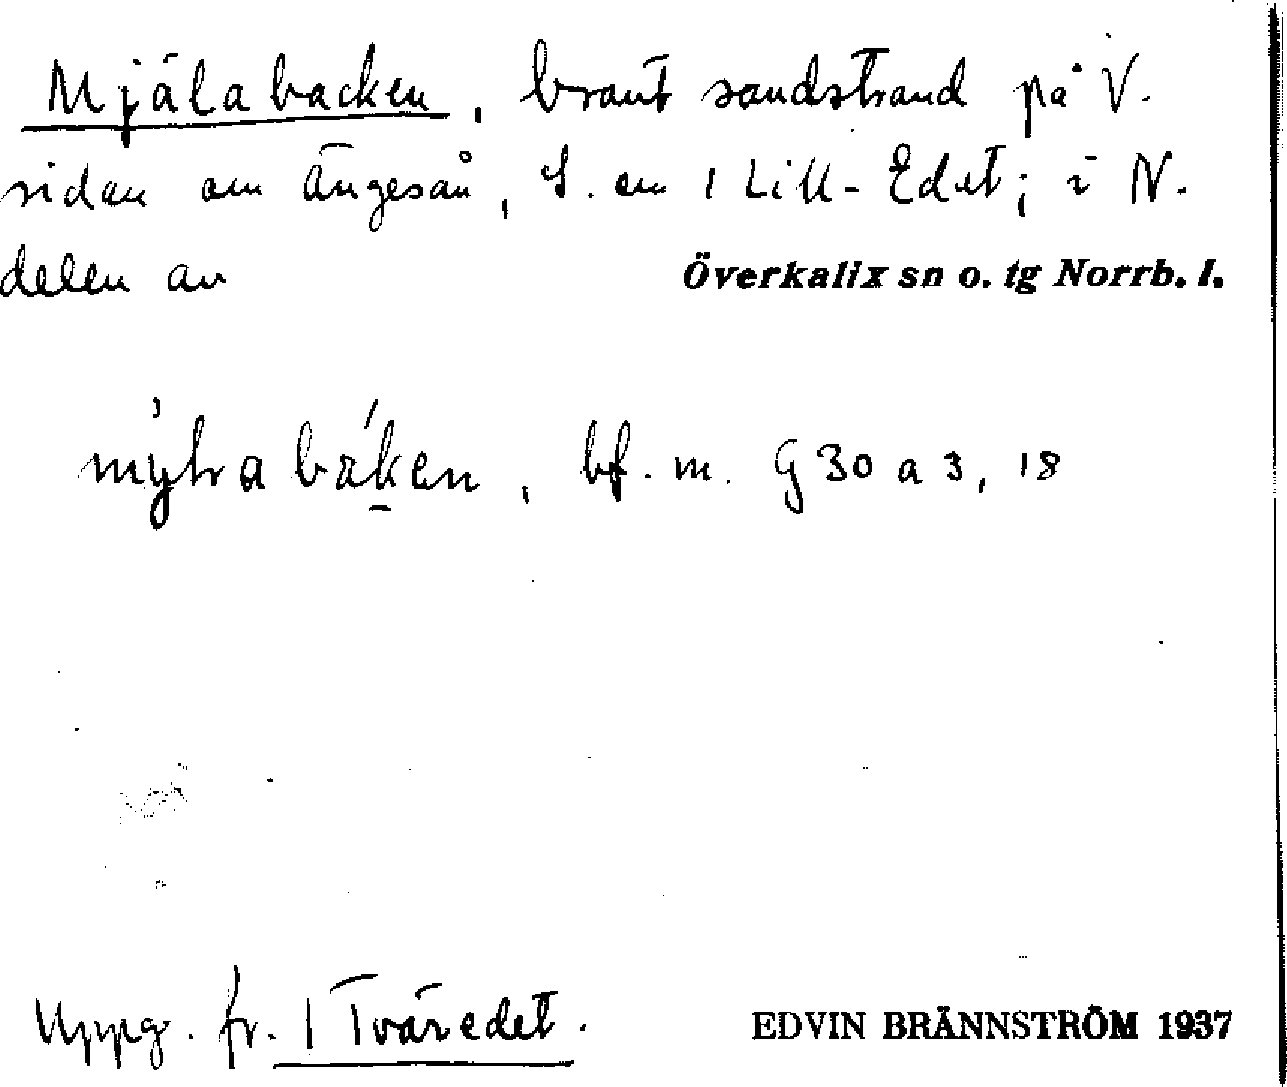 Mjälabacken, brant sandstrand på V.
sidan om Ängesån, S. om 1 Lill-Edet; i N.
delen av Överkalix sn o. tg Norrb. l.
bf. m. G 30 a 3, 18
Uppg. fr. 1 Tväredet.
EDVIN BRÄNNSTRÖM 1937